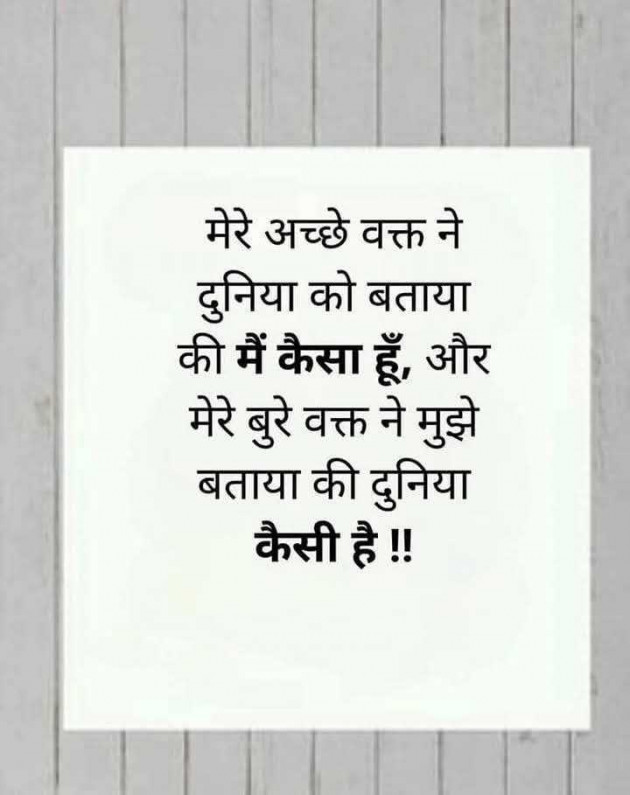 मेरे अच्छे वक्त ने
दुनिया को बताया
की मैं कैसा हूँ, और
मेरे बुरे वक्त ने मुझे
बताया की दुनिया
कैसी है !!